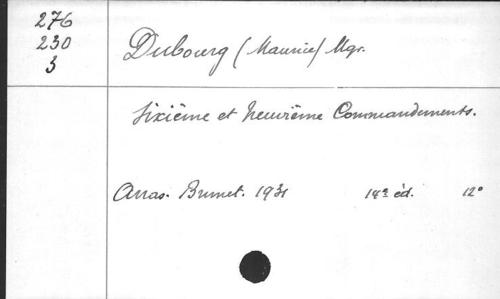 276
230
3
Dubourg (Maurice) Mgr.
Sixième et Neuvième Commandements.
Arras. Brunet. 1931 14e éd. 12°